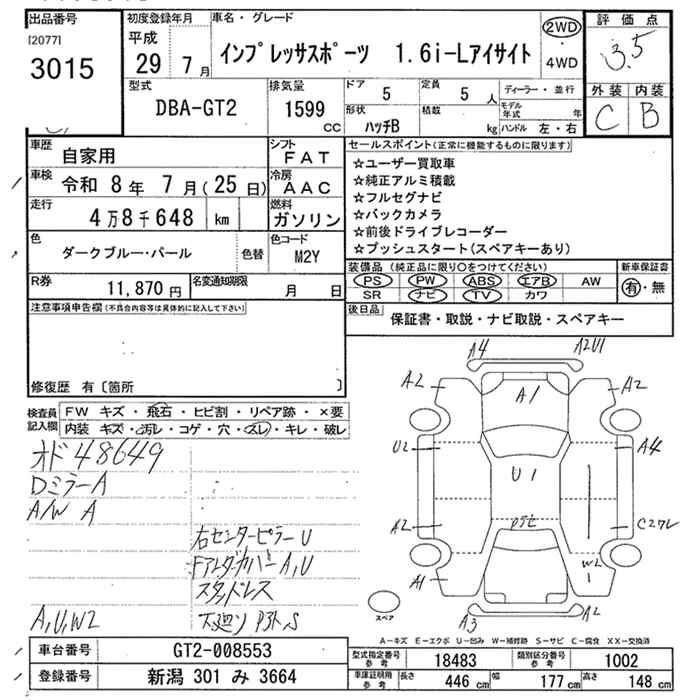 出品番号
[2077]
3015
初度登録年月
平成
29年 7月
車名・グレード
インプレッサスポーツ 1.6i-Lアイサイト
2WD
・
4WD
評価点
3.5
外装 内装
C B
型式
DBA-GT2
排気量
1599
CC
ドア
5
定員
5 人
形状
ハッチB
積載
kg
ディーラー・並行
モデル年式 年
ハンドル 左・右
車歴
自家用
シフト
FAT
車検 令和 8年 7月(25日)
冷房
AAC
走行
4万8千648 km
燃料
ガソリン
色
ダークブルー・パール
色替
色コード
M2Y
R券
11,870円
名変通知期限
月 日
セールスポイント(正常に機能するものに限ります)
☆ユーザー買取車
☆純正アルミ積載
☆フルセグナビ
☆バックカメラ
☆前後ドライブレコーダー
☆プッシュスタート(スペアキーあり)
装備品 (純正品に限り○をつけてください)
PS PW ABS エアB AW
SR ナビ TV カワ
新車保証書
有・無
後日品
保証書・取説・ナビ取説・スペアキー
注意事項申告欄(不具合内容等は具体的に記入して下さい)
修復歴 有〔箇所 〕
検査員記入欄
FW キズ・飛石・ヒビ割・リペア跡・×要
内装 キズ・汚レ・コゲ・穴・スレ・キレ・破レ
オド48649
DミラーA
A/W A
右センターピラーU
FアンダーカバーA,U
スタッドレス
A,U,W2
下廻り P3ト,S
A4
A2U1
A2
A1
A2
U2
A4
U1
A2
C2ワレ
W2
1
A1
A3
A2
スペア
A-キズ E-エクボ U-凹み W-補修跡 S-サビ C-腐食 XX-交換済
車台番号
GT2-008553
登録番号
新潟 301 み 3664
型式指定番号
参考
18483
類別区分番号
参考
1002
車庫証明用
参考
長さ 446 cm
幅 177 cm
高さ 148 cm